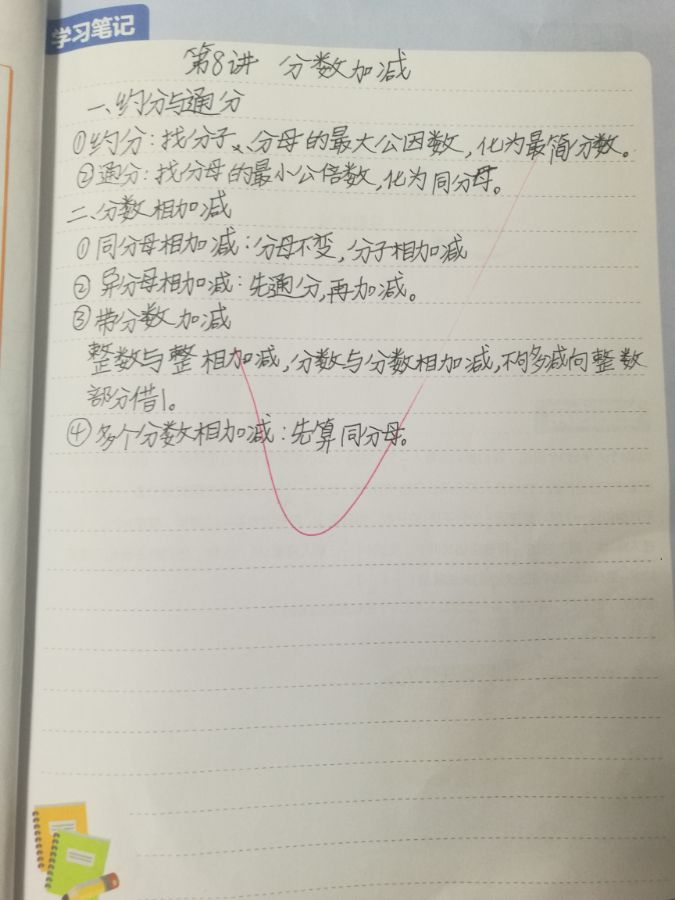 学习笔记
第8讲 分数加减
一、约分与通分
①约分:找分子、分母的最大公因数,化为最简分数。
②通分:找分母的最小公倍数,化为同分母。
二、分数相加减
①同分母相加减:分母不变,分子相加减
②异分母相加减:先通分,再加减。
③带分数加减
整数与整相加减,分数与分数相加减,不够减向整数
部分借1。
④多个分数相加减:先算同分母。